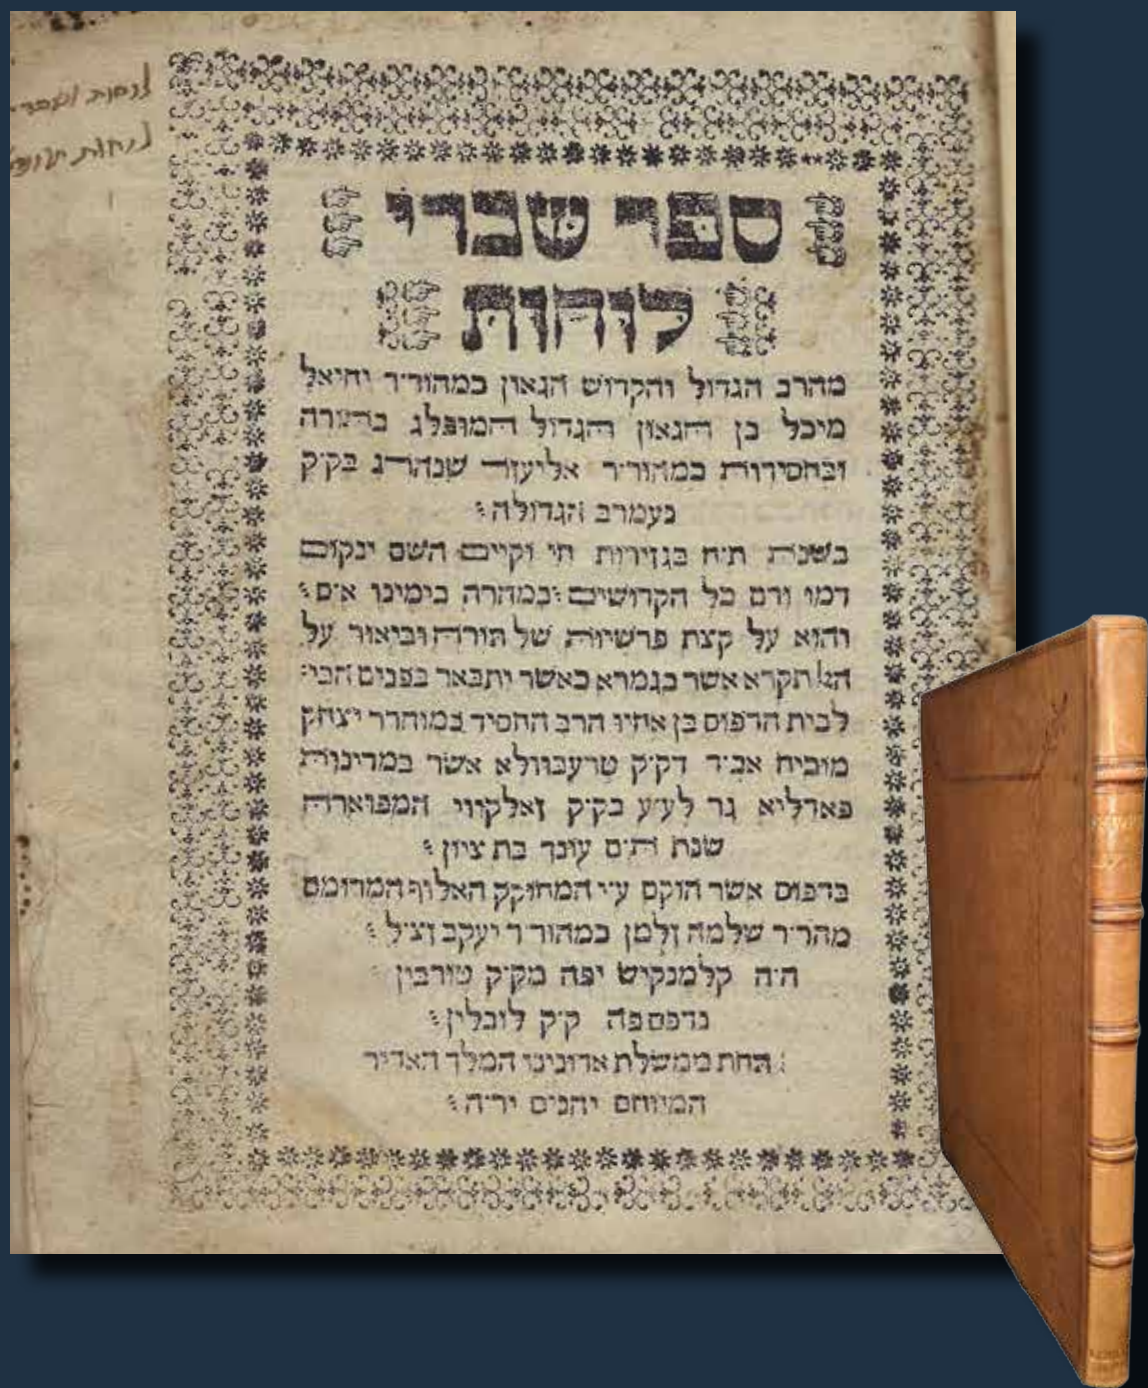 ספר שברי
לוחות
מהרב הגדול והקדוש הגאון כמהור״ר יחיאל
מיכל בן הגאון הגדול המופלג בתורה
ובחסידות כמהור״ר אליעזר שנהרג בק״ק
נעמרב הגדולה:
בשנת ת״ח בגזירות חי וקיים השם ינקום
דמו ודם כל הקדושים: במהרה בימינו א״ס:
והוא על קצת פרשיות של תורה וביאור על
תקרא אשר בגמרא כאשר יתבאר בפנים הבי׳
לבית הדפוס בן אחיו הרב החסיד במוהרר יצחק
מוכיח אב״ד דק״ק טרעבוולא אשר במדינות
פאדליא גר לע״ע בק״ק זאלקווי המפוארה
שנת עונך בת ציון:
בדפוס אשר הוקם ע״י המחוקק האלוף המרומם
מהר״ר שלמה זלמן כמהור״ר יעקב זצ״ל:
ה״ה קלמנקיש יפה מק״ק טורבין
נדפס פה ק״ק לובלין:
תחת ממשלת אדונינו המלך האדיר
המיוחס יהנים יר״ה: